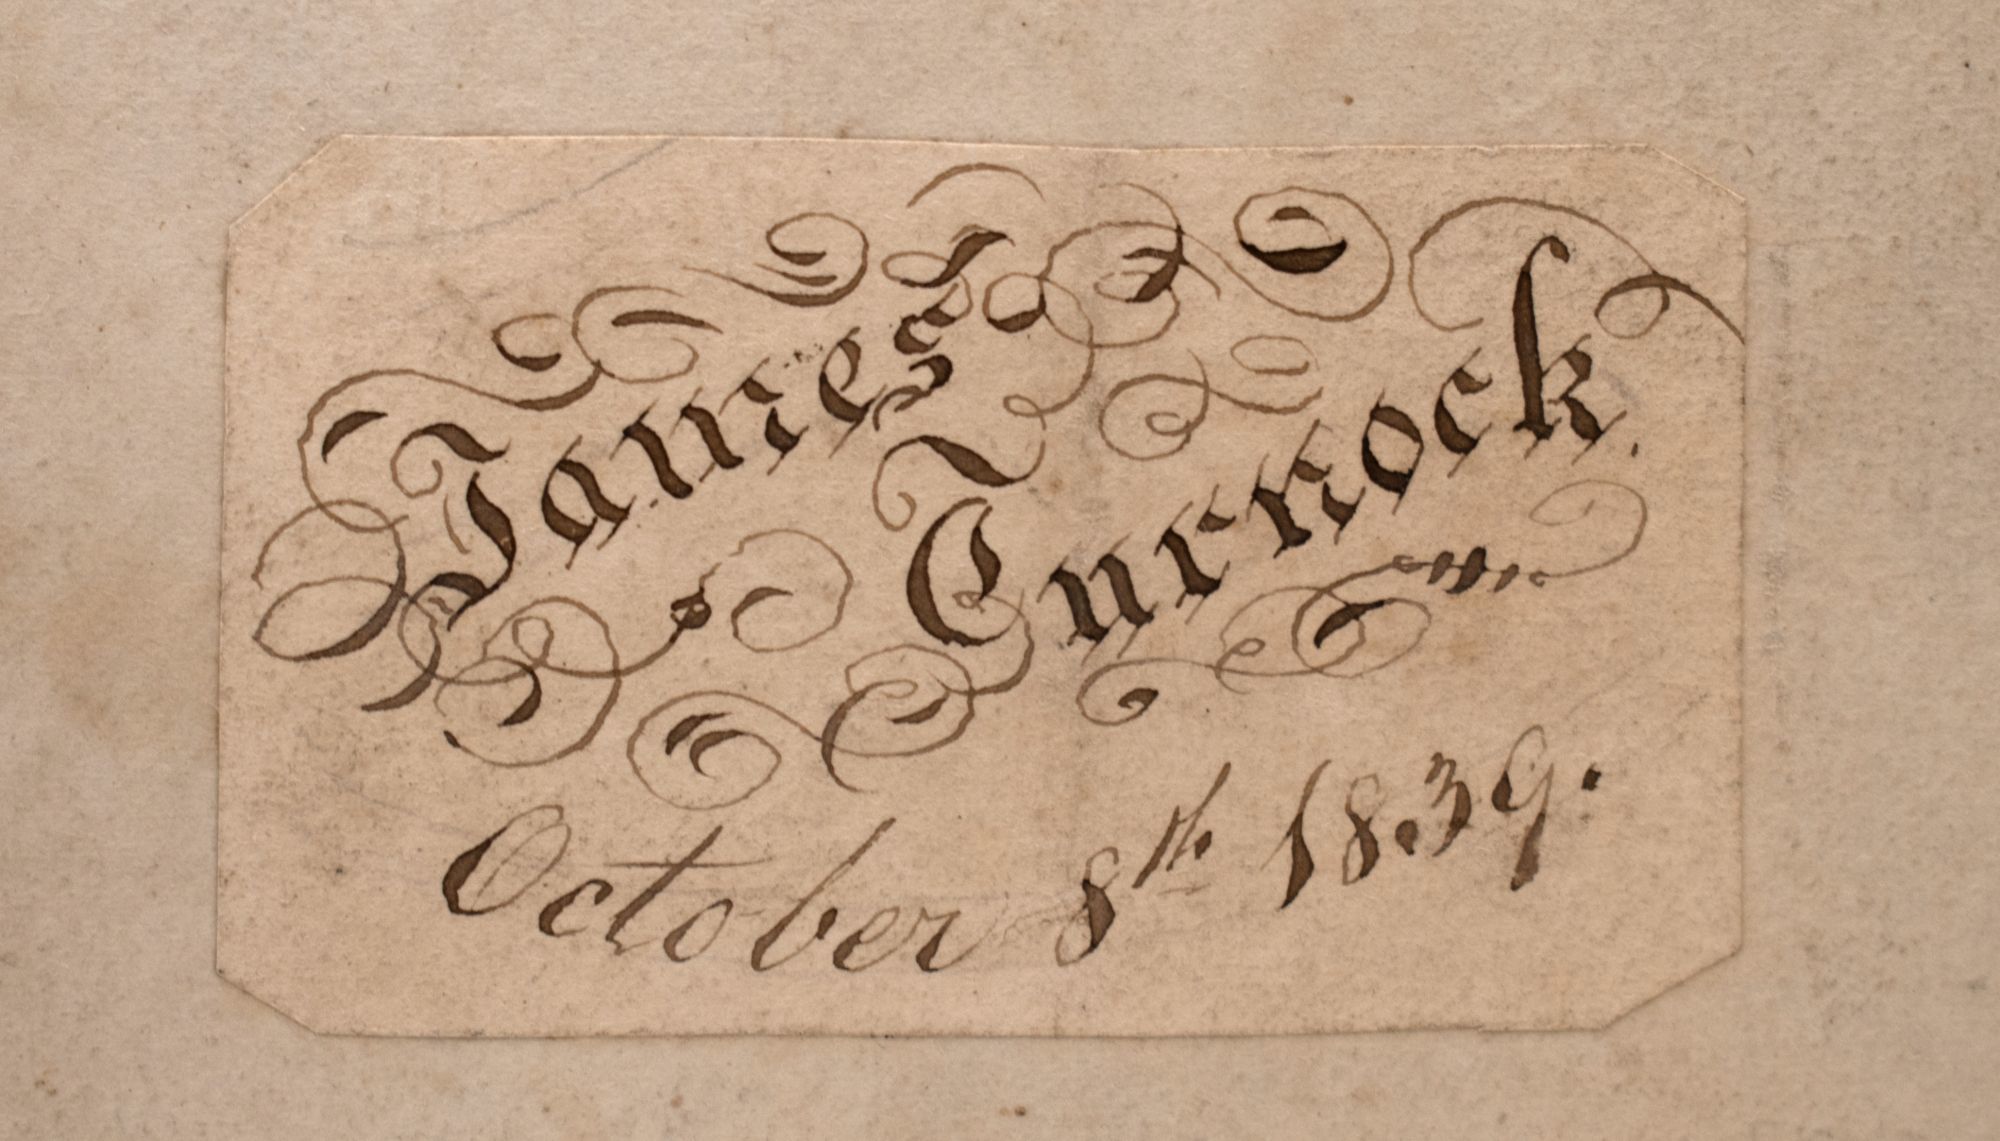 James
Turnock.
October 8th 1839.